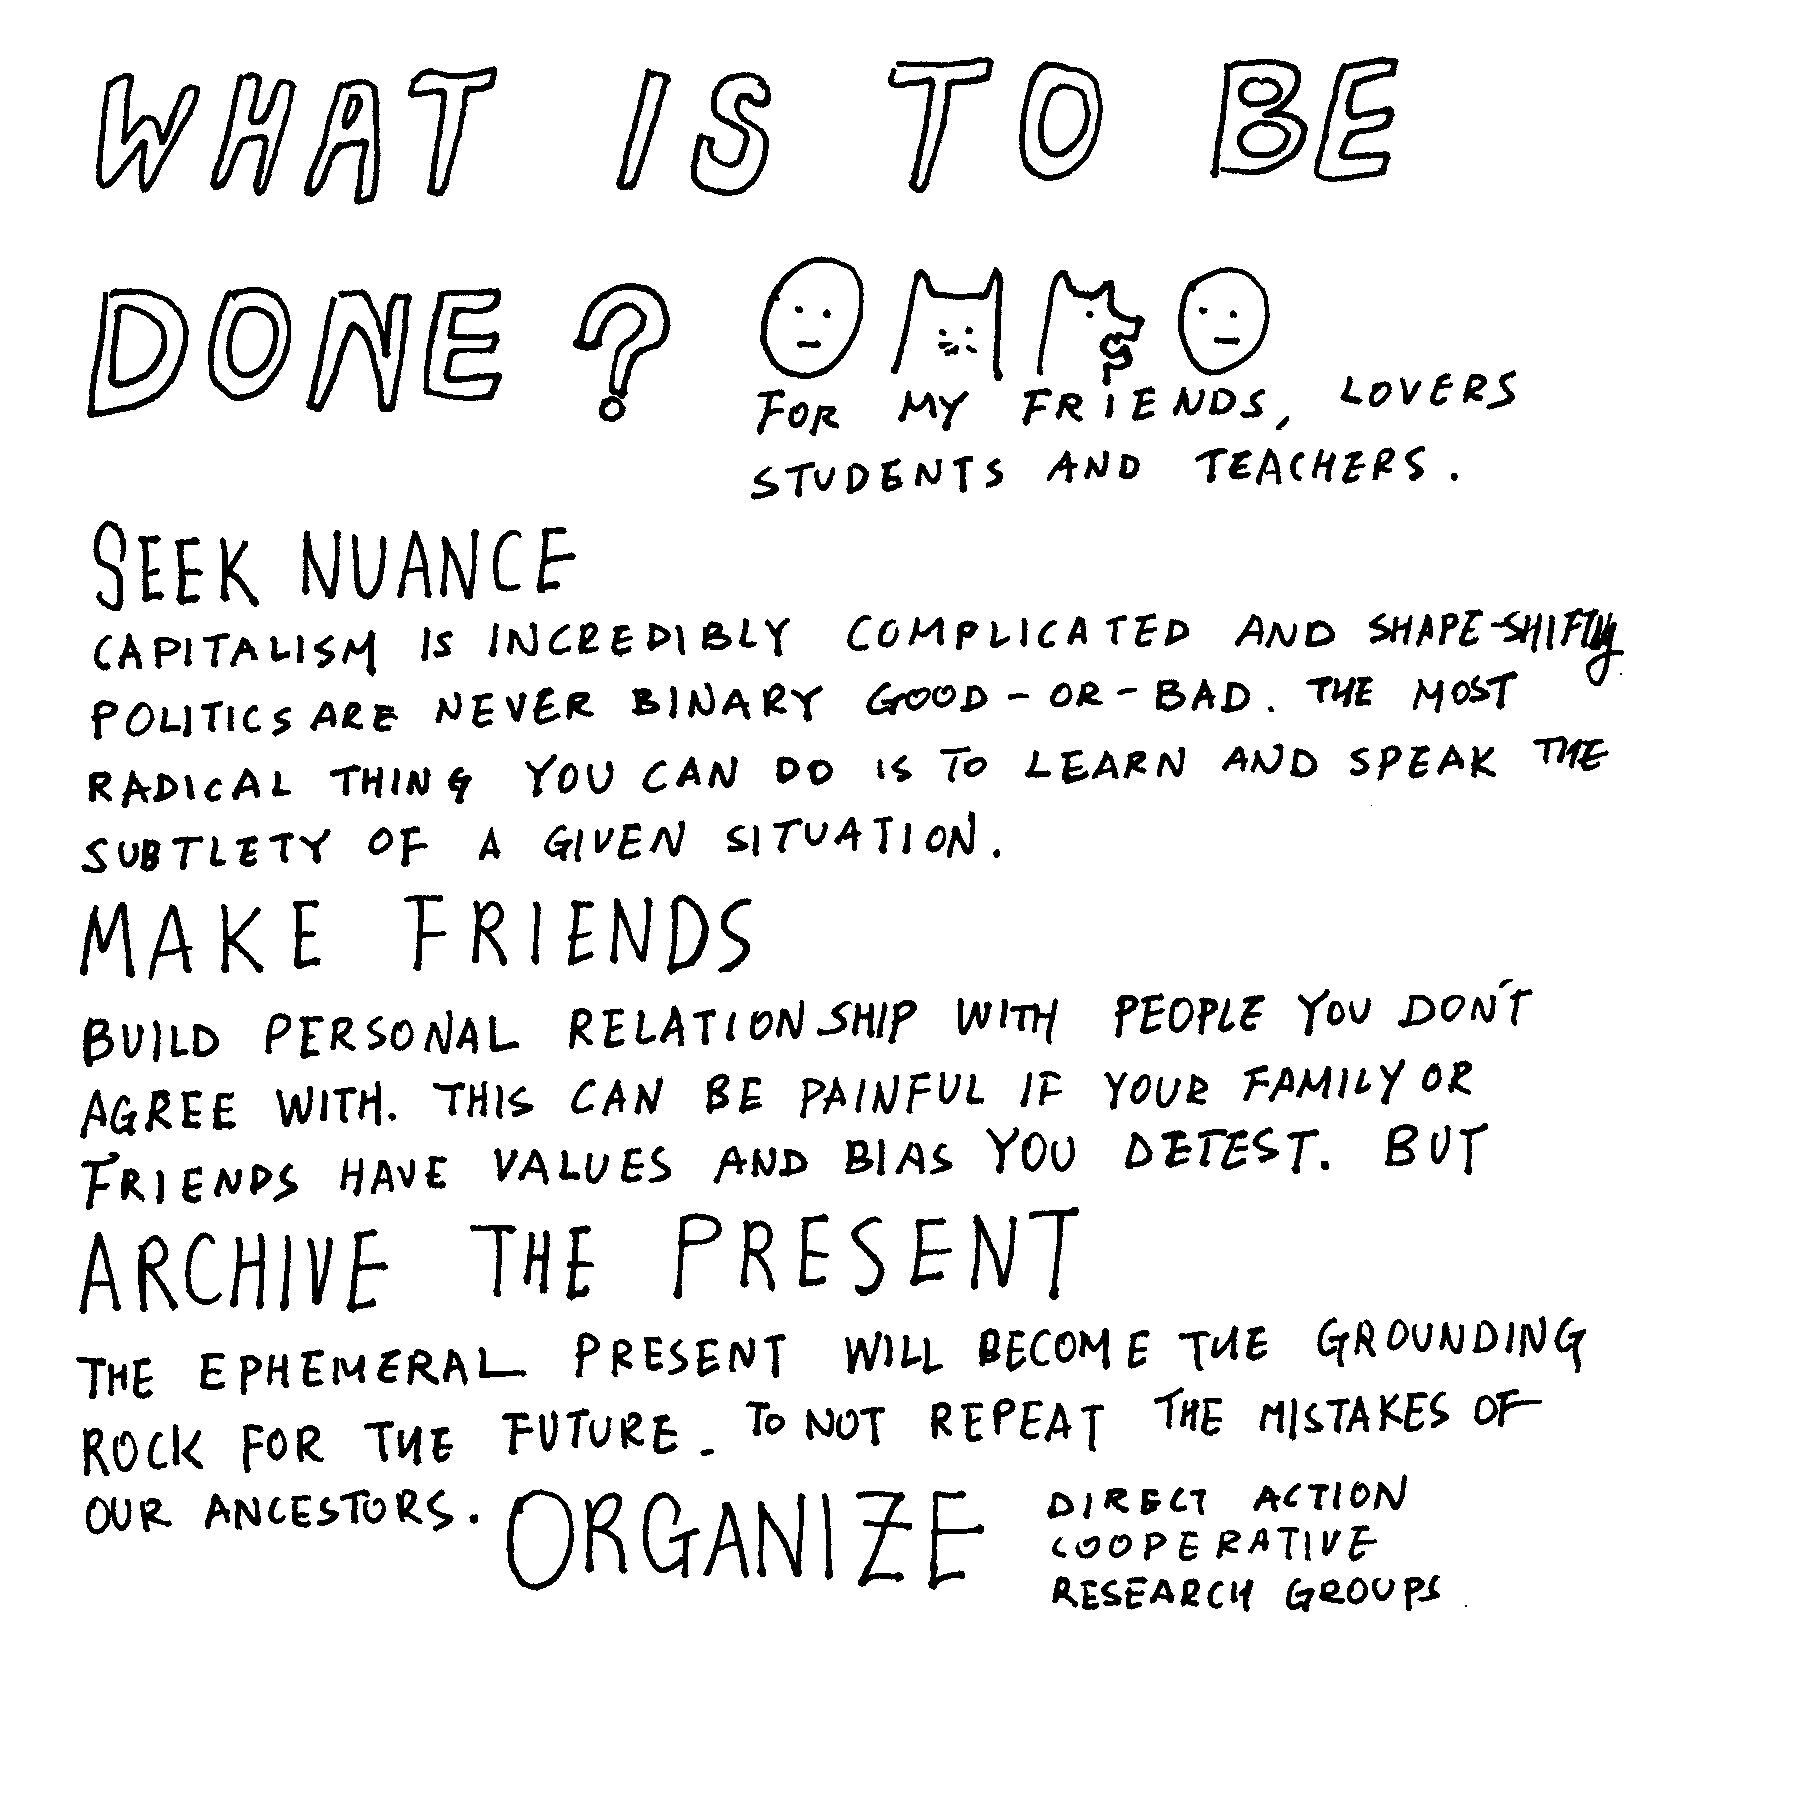 WHAT IS TO BE
DONE?
FOR MY FRIENDS, LOVERS
STUDENTS AND TEACHERS.
SEEK NUANCE
CAPITALISM IS INCREDIBLY COMPLICATED AND SHAPE-SHIFTY
POLITICS ARE NEVER BINARY GOOD-OR-BAD. THE MOST
RADICAL THING YOU CAN DO IS TO LEARN AND SPEAK THE
SUBTLETY OF A GIVEN SITUATION.
MAKE FRIENDS
BUILD PERSONAL RELATIONSHIP WITH PEOPLE YOU DON'T
AGREE WITH. THIS CAN BE PAINFUL IF YOUR FAMILY OR
FRIENDS HAVE VALUES AND BIAS YOU DETEST. BUT
ARCHIVE THE PRESENT
THE EPHEMERAL PRESENT WILL BECOME THE GROUNDING
ROCK FOR THE FUTURE. TO NOT REPEAT THE MISTAKES OF
OUR ANCESTORS.
ORGANIZE
DIRECT ACTION
COOPERATIVE
RESEARCH GROUPS